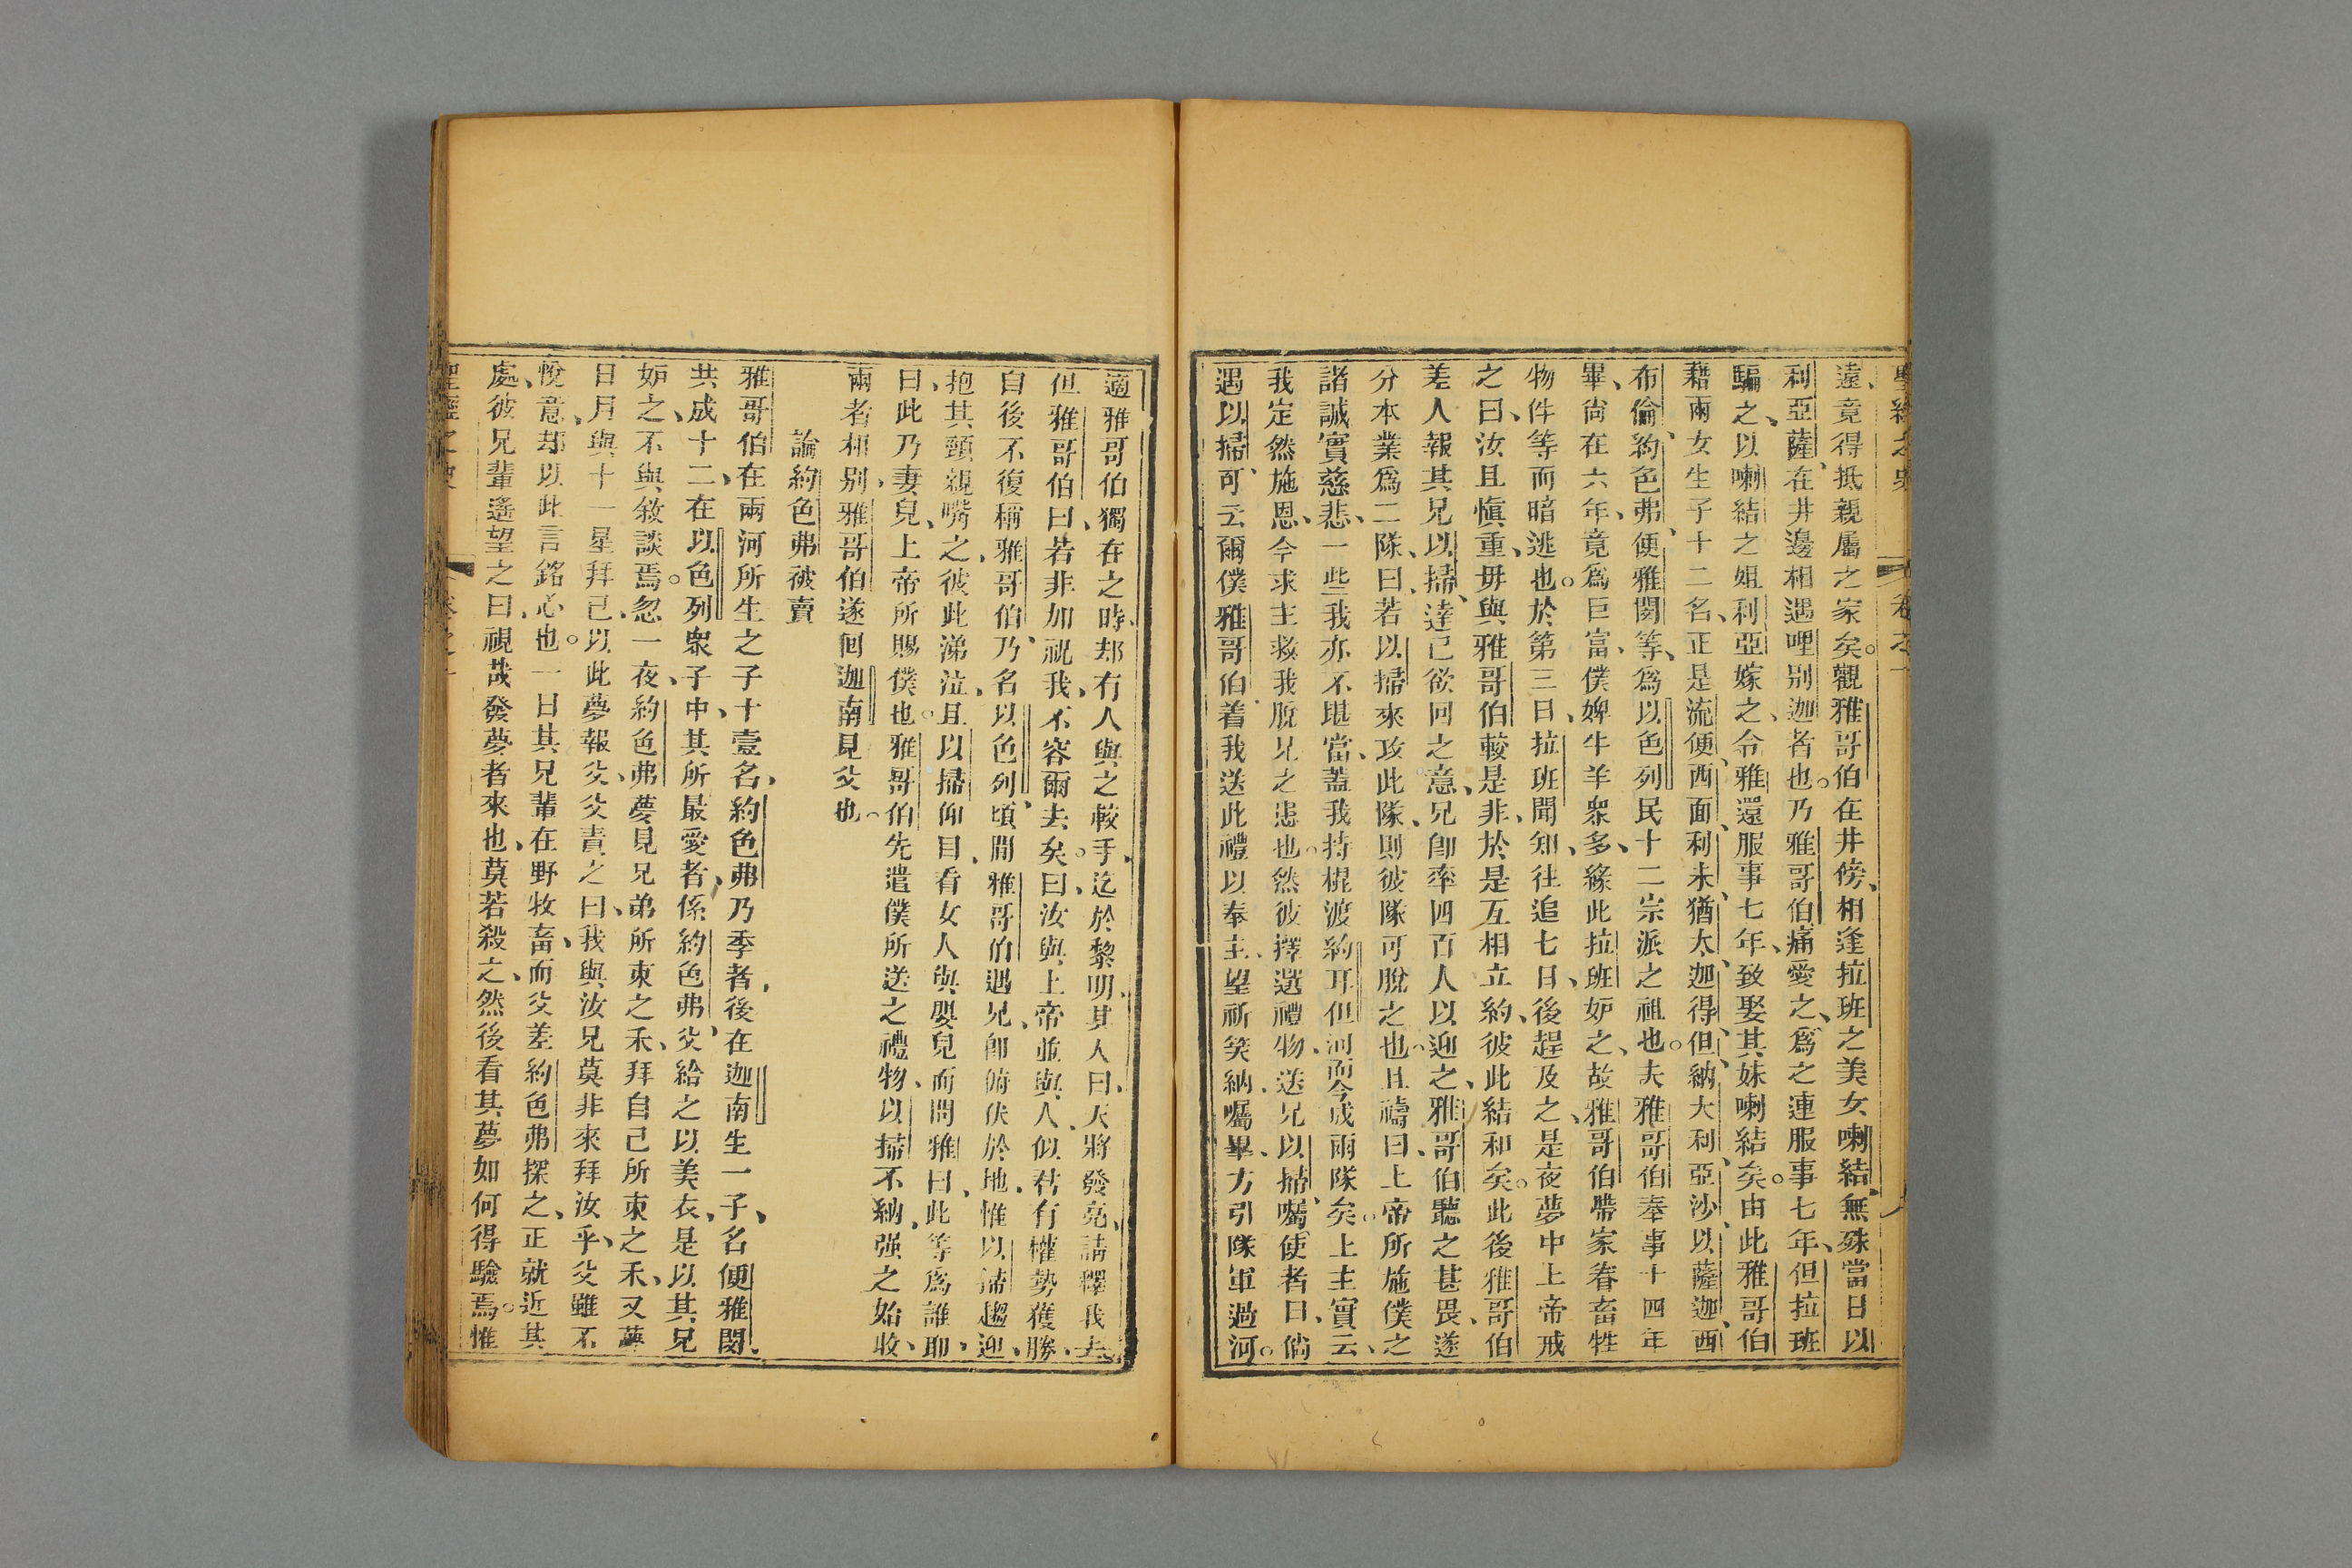 聖經之史 卷之一
遠、竟得抵親屬之家矣。觀雅哥伯在井傍、相逢拉班之美女喇結、無殊當日以
利亞薩、在井邊相遇哩別迦者也。乃雅哥伯痛愛之、爲之連服事七年、但拉班
騙之、以喇結之姐利亞嫁之、令雅還服事七年、致娶其妹喇結矣。由此雅哥伯
藉兩女生子十二名、正是流便、西面、利未、猶太、迦得、但、納大利、亞沙、以薩迦、西
布倫、約色弗、便雅閔等、爲以色列民十二宗派之祖也。夫雅哥伯奉事十四年
畢、尙在六年、竟爲巨富、僕婢牛羊衆多、緣此拉班妒之、故雅哥伯帶家眷畜牲
物件等而暗逃也。於第三日、拉班聞知、往追七日、後趕及之、是夜夢中上帝戒
之曰、汝且愼重、毋與雅哥伯較是非、於是互相立約、彼此結和矣。此後雅哥伯
差人報其兄以掃、達己欲回之意、兄卽率四百人以迎之、雅哥伯聽之甚畏、遂
分本業爲二隊、曰、若以掃來攻此隊、則彼隊可脫之也。且禱曰、上帝所施僕之
諸誠實慈悲、一些我亦不堪當、蓋我持棍渡約耳但河而今成兩隊矣。上主實云、
我定然施恩、今求主救我脫兄之患也。然彼擇選禮物、送兄以掃、囑使者曰、倘
遇以掃、可云爾僕雅哥伯着我送此禮以奉主、望祈笑納、囑畢、方引隊軍過河。
適雅哥伯獨在之時、却有人與之較手、迄於黎明、其人曰、天將發亮、請釋我去、
但雅哥伯曰、若非加祝我、不容爾去矣。曰、汝與上帝並與人、似君有權勢獲勝、
自後不復稱雅哥伯、乃名以色列、頃間雅哥伯遇兄、卽俯伏於地、惟以掃趨迎、
抱其頸親嘴之、彼此涕泣、且以掃仰目、看女人與嬰兒而問雅曰、此等爲誰耶、
曰、此乃妻兒、上帝所賜僕也。雅哥伯先遣僕所送之禮物、以掃不納、强之始收、
兩者相別、雅哥伯遂回迦南見父也。
論約色弗被賣
雅哥伯在兩河所生之子十壹名、約色弗乃季者、後在迦南生一子、名便雅閔、
共成十二、在以色列衆子中、其所最愛者、係約色弗、父給之以美衣、是以其兄
妒之、不與敘談焉。忽一夜、約色弗夢見兄弟所束之禾、拜自己所束之禾、又夢
日月與十一星拜己、以此夢報父、父責之曰、我與汝兄莫非來拜汝乎、父雖不
悅意、却以此言銘心也。一日其兄輩在野牧畜、而父差約色弗探之、正就近其
處、彼兄輩遙望之曰、視哉發夢者來也、莫若殺之、然後看其夢如何得驗焉。惟
聖經之史 卷之一